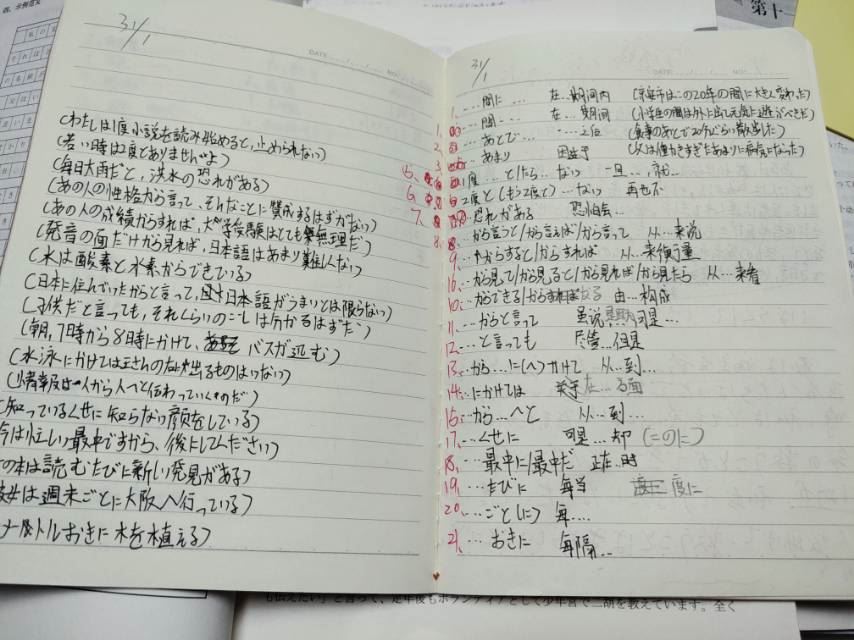 31/1
(わたしは1度小説を読み始めると,止められない)
(若い時は2度とありませんよ)
(毎日大雨だと,洪水の恐れがある)
(あの人の性格から言って,そんなことに賛成するはずがない)
(あの人の成績からすれば,大学受験はとても無理だ)
(発音の面だけから見れば,日本語はあまり難しくない)
(水は酸素と水素からできている)
(日本に住んでいたからと言って,日本語がうまいとは限らない)
(子供だと言っても,それくらいのことは分かるはずだ)
(朝,7時から8時にかけて,バスが込む)
(水泳にかけては王さんの右に出るものはいない)
(情報は人から人へと伝わっていくものだ)
(知っているくせに知らない顔をしている)
今は忙しい最中ですから,後にしてください)
の本は読むたびに新しい発見がある)
彼女は週末ごとに大阪へ行っている)
メートルおきに木を植える)
31/1
DATE
1. …間に… 在…期间内 (京安市はこの20年の間に大きく変わった)
…間… 在…期间 (小学生の間は外に出て元気に遊ぶべきだ)
…あとで… …之后 (食事のあとで20分ぐらい散歩した)
…あまり 因…于 (父は働きすぎたあまりに病気になった)
1度…と/たら…ない 一旦…,就…
2度と(もう2度と)…ない 再也不
恐れがある 恐怕会…
8. …から言うと/から言えば/から言って 从…来说
9. …からすると/からすれば 从…来衡量
16. …から見て/から見ると/から見れば/から見たら 从…来看
10. …からできる/からなる 由…构成
11. …からと言って 虽说…可是…
12. …と言っても 尽管…但是
13. …から…に(へ)かけて 从…到…
14. …にかけては 在…方面
15. …から…へと 从…到…
17. …くせに 可是…却 (このに)
18. …最中に/最中だ 正在…时
19. …たびに 每当 度に
20. …ごと(に) 每…
21. …おきに 每隔…
も伝えたい」と言って、定年後もボランティアとして少年宮で二胡を教えています。全く
第十